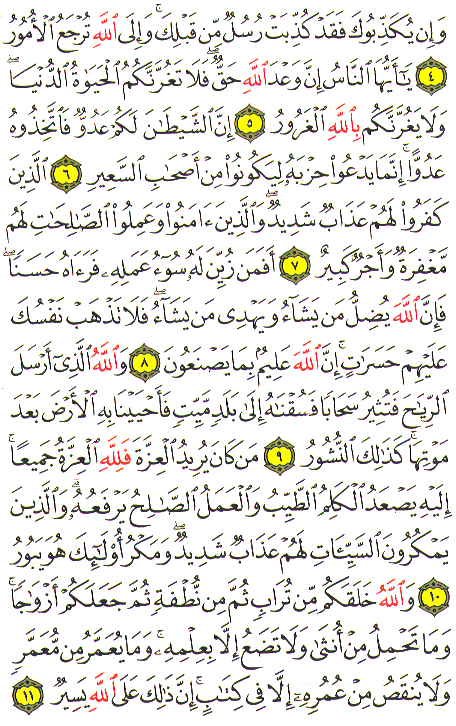 وَإِن يُكَذِّبُوكَ فَقَدْ كُذِّبَتْ رُسُلٌ مِّن قَبْلِكَ ۚ وَإِلَى ٱللَّهِ تُرْجَعُ ٱلْأُمُورُ
٤ يَـٰٓأَيُّهَا ٱلنَّاسُ إِنَّ وَعْدَ ٱللَّهِ حَقٌّ ۖ فَلَا تَغُرَّنَّكُمُ ٱلْحَيَوٰةُ ٱلدُّنْيَا ۖ
وَلَا يَغُرَّنَّكُم بِٱللَّهِ ٱلْغَرُورُ ٥ إِنَّ ٱلشَّيْطَـٰنَ لَكُمْ عَدُوٌّ فَٱتَّخِذُوهُ
عَدُوًّا ۚ إِنَّمَا يَدْعُوا۟ حِزْبَهُۥ لِيَكُونُوا۟ مِنْ أَصْحَـٰبِ ٱلسَّعِيرِ ٦ ٱلَّذِينَ
كَفَرُوا۟ لَهُمْ عَذَابٌ شَدِيدٌ ۖ وَٱلَّذِينَ ءَامَنُوا۟ وَعَمِلُوا۟ ٱلصَّـٰلِحَـٰتِ لَهُم
مَّغْفِرَةٌ وَأَجْرٌ كَبِيرٌ ٧ أَفَمَن زُيِّنَ لَهُۥ سُوٓءُ عَمَلِهِۦ فَرَءَاهُ حَسَنًا ۖ
فَإِنَّ ٱللَّهَ يُضِلُّ مَن يَشَآءُ وَيَهْدِى مَن يَشَآءُ ۖ فَلَا تَذْهَبْ نَفْسُكَ
عَلَيْهِمْ حَسَرَٰتٍ ۚ إِنَّ ٱللَّهَ عَلِيمٌۢ بِمَا يَصْنَعُونَ ٨ وَٱللَّهُ ٱلَّذِىٓ أَرْسَلَ
ٱلرِّيَـٰحَ فَتُثِيرُ سَحَابًا فَسُقْنَـٰهُ إِلَىٰ بَلَدٍ مَّيِّتٍ فَأَحْيَيْنَا بِهِ ٱلْأَرْضَ بَعْدَ
مَوْتِهَا ۚ كَذَٰلِكَ ٱلنُّشُورُ ٩ مَن كَانَ يُرِيدُ ٱلْعِزَّةَ فَلِلَّهِ ٱلْعِزَّةُ جَمِيعًا ۚ
إِلَيْهِ يَصْعَدُ ٱلْكَلِمُ ٱلطَّيِّبُ وَٱلْعَمَلُ ٱلصَّـٰلِحُ يَرْفَعُهُۥ ۚ وَٱلَّذِينَ
يَمْكُرُونَ ٱلسَّيِّـَٔاتِ لَهُمْ عَذَابٌ شَدِيدٌ ۖ وَمَكْرُ أُو۟لَـٰٓئِكَ هُوَ يَبُورُ
١٠ وَٱللَّهُ خَلَقَكُم مِّن تُرَابٍ ثُمَّ مِن نُّطْفَةٍ ثُمَّ جَعَلَكُمْ أَزْوَٰجًا ۚ
وَمَا تَحْمِلُ مِنْ أُنثَىٰ وَلَا تَضَعُ إِلَّا بِعِلْمِهِۦ ۚ وَمَا يُعَمَّرُ مِن مُّعَمَّرٍ
وَلَا يُنقَصُ مِنْ عُمُرِهِۦٓ إِلَّا فِى كِتَـٰبٍ ۚ إِنَّ ذَٰلِكَ عَلَى ٱللَّهِ يَسِيرٌ ١١